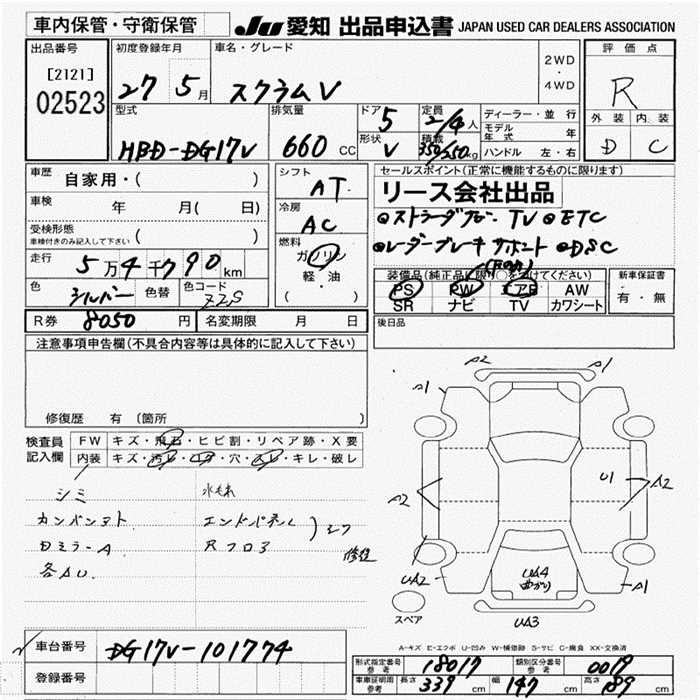 車内保管・守衛保管
JU 愛知 出品申込書 JAPAN USED CAR DEALERS ASSOCIATION
出品番号
[2121]
02523
初度登録年月
27 5月
車名・グレード
スクラムV
2WD
・
4WD
評価点
R
外装 内装
D C
型式
HBD-DG17V
排気量
660 CC
ドア
5
形状
V
定員
2/4人
積載
350/250kg
ディーラー・並行
モデル年式 年
ハンドル 左・右
車歴
自家用・( )
車検
年 月( 日)
受検形態
車検付きのみ記入して下さい ( )
走行
5万4千790km
色
シルバー
色替
色コード
ZZS
シフト
AT
冷房
AC
燃料
ガソリン
軽・油
( )
セールスポイント(正常に機能するものに限ります)
リース会社出品
TV ETC
レーダーブレーキサポート DSC
装備品(純正品に限り○をつけてください)
PS PW エアB AW
SR ナビ TV カワシート
新車保証書
有・無
R券 8050円
名変期限 月 日
後日品
注意事項申告欄(不具合内容等は具体的に記入して下さい)
修復歴 有 (箇所 )
検査員
記入欄
FW キズ・飛石・ヒビ割・リペア跡・X要
内装 キズ・汚レ・コゲ・穴・スレ・キレ・破レ
シミ
カンバンアト
Dミラー A
各AU
エンドパネル
Rフロア
修正
A2 A1
A1
A2
U1 A2
UA2
UA4
曲がり
A1
スペア
UA3
A-キズ E-エクボ U-凹み W-補修跡 S-サビ C-腐食 XX-交換済
車台番号
DG17V-101774
登録番号
形式指定番号
参考
18017
類別区分番号
参考
0019
車車証明用
参考
長さ 339cm 幅 147cm 高さ 189cm